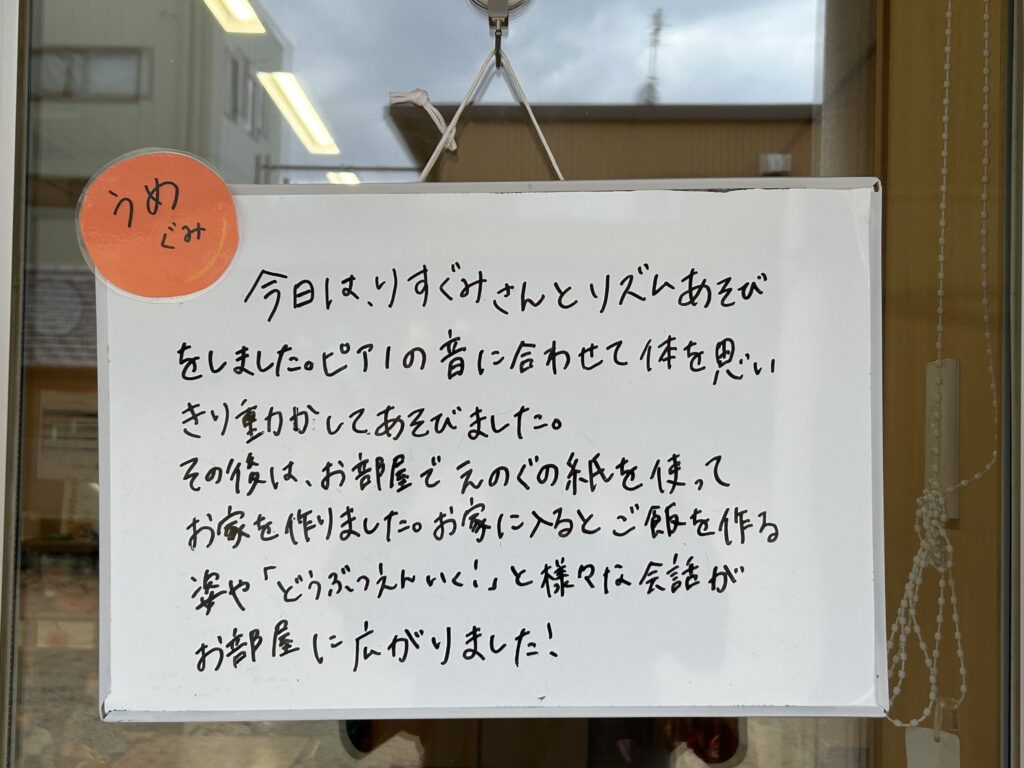 うめ
ぐみ
今日は、りすぐみさんとリズムあそび
をしました。ピアノの音に合わせて体を思い
きり動かしてあそびました。
その後は、お部屋でえのぐの紙を使って
お家を作りました。お家に入るとご飯を作る
姿や「どうぶつえんいく!」と様々な会話が
お部屋に広がりました!